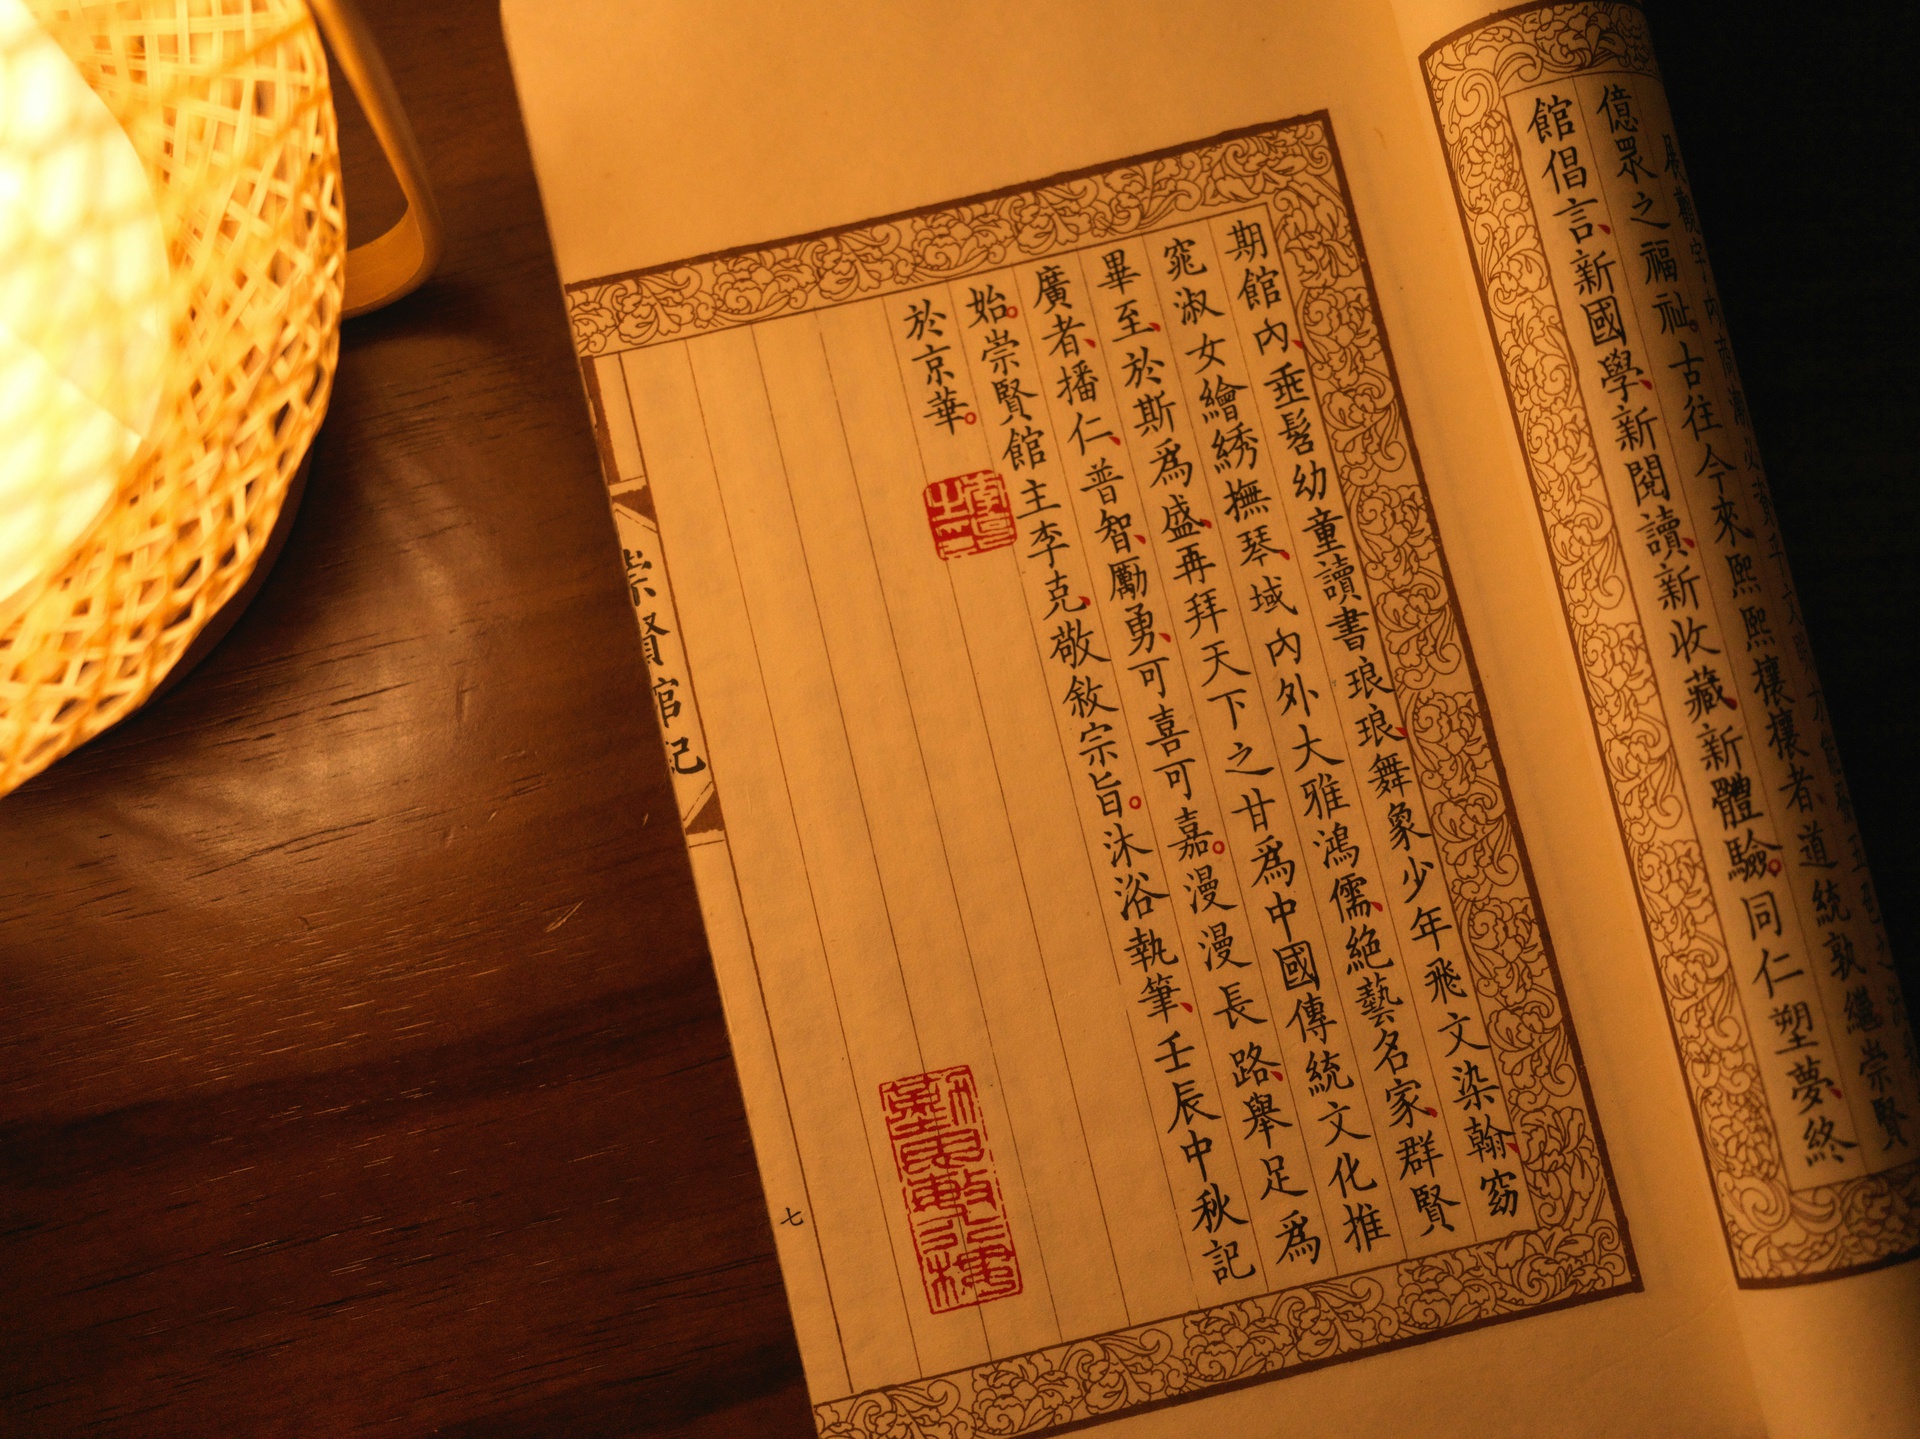 億眾之福祉。古往今來熙熙攘攘者、道統孰繼崇賢
館倡言、新國學、新閱讀、新收藏、新體驗。同仁塑夢、終
期館內、垂髫幼童讀書琅琅、舞象少年飛文染翰、窈
窕淑女繪綉撫琴、域内外大雅鴻儒、絕藝名家、群賢
畢至、於斯爲盛、再拜天下之甘爲中國傳統文化推
廣者、播仁、普智、勵勇、可喜可嘉。漫漫長路、舉足爲
始。崇賢館主李克、敬敘宗旨。沐浴執筆、壬辰中秋記
於京華。
崇賢館記
七